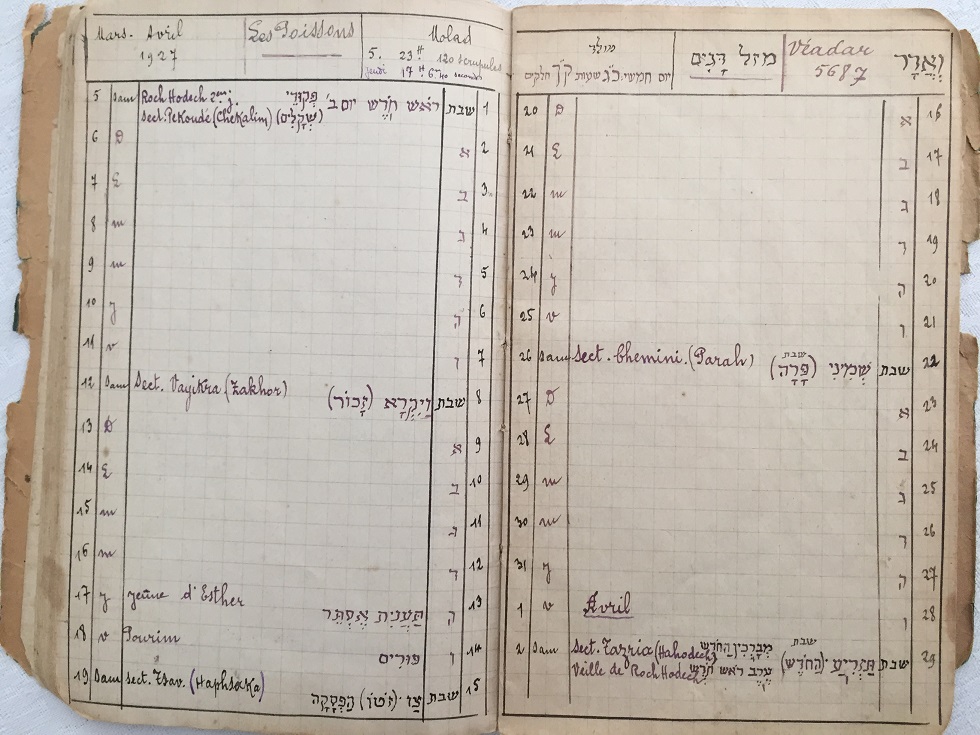 Mars. Avril
1927
Les Poissons
Molad
5. 23 H 120 scrupules
Jeudi 17 H 6 m 40 secondes
5 Sam Roch Hodech 2em j. ראֹש חֹדֶש יום ב' פְּקוּדֵי שבת 1
Sect. Pekoudé (Chekalim) (שְׁקָלִים)
6 D א 2
7 L ב 3
8 m ג 4
9 m ד 5
10 J ה 6
11 v ו 7
12 Sam Sect. Vayikra (Zakhor) וַיִקְרָא (זָכוֹר) שבת 8
13 D א 9
14 L ב 10
15 m ג 11
16 m ד 12
17 J Jeûne d'Esther תַּעֲנִית אֶסְתֵּר ה 13
18 v Pourim פּוּרִים ו 14
19 Sam Sect. Tsav. (Haphsaka) צַו · הַפְסָקָה שבת 15
מולד
יום חמישי כ"ג שעות ק"ך חלקים
מזל דָגִים
Véadar
5687
וְאֲדָר
20 D א 16
21 L ב 17
22 m ג 18
23 m ד 19
24 J ה 20
25 v ו 21
26 Sam Sect. Chemini. (Parah) שְׁמִינִי (שבת פָּרָה) שבת 22
27 D א 23
28 L ב 24
29 m ג 25
30 m ד 26
31 J ה 27
1 v Avril ו 28
2 Sam Sect. Tazria (Hahodech) מְבָרְכִין הַחֹדֶש תַּזְרִיעַ · (שבת הַחֹדֶש) שבת 29
Veille de Roch Hodech עֶרֶב ראֹש חֹדֶש